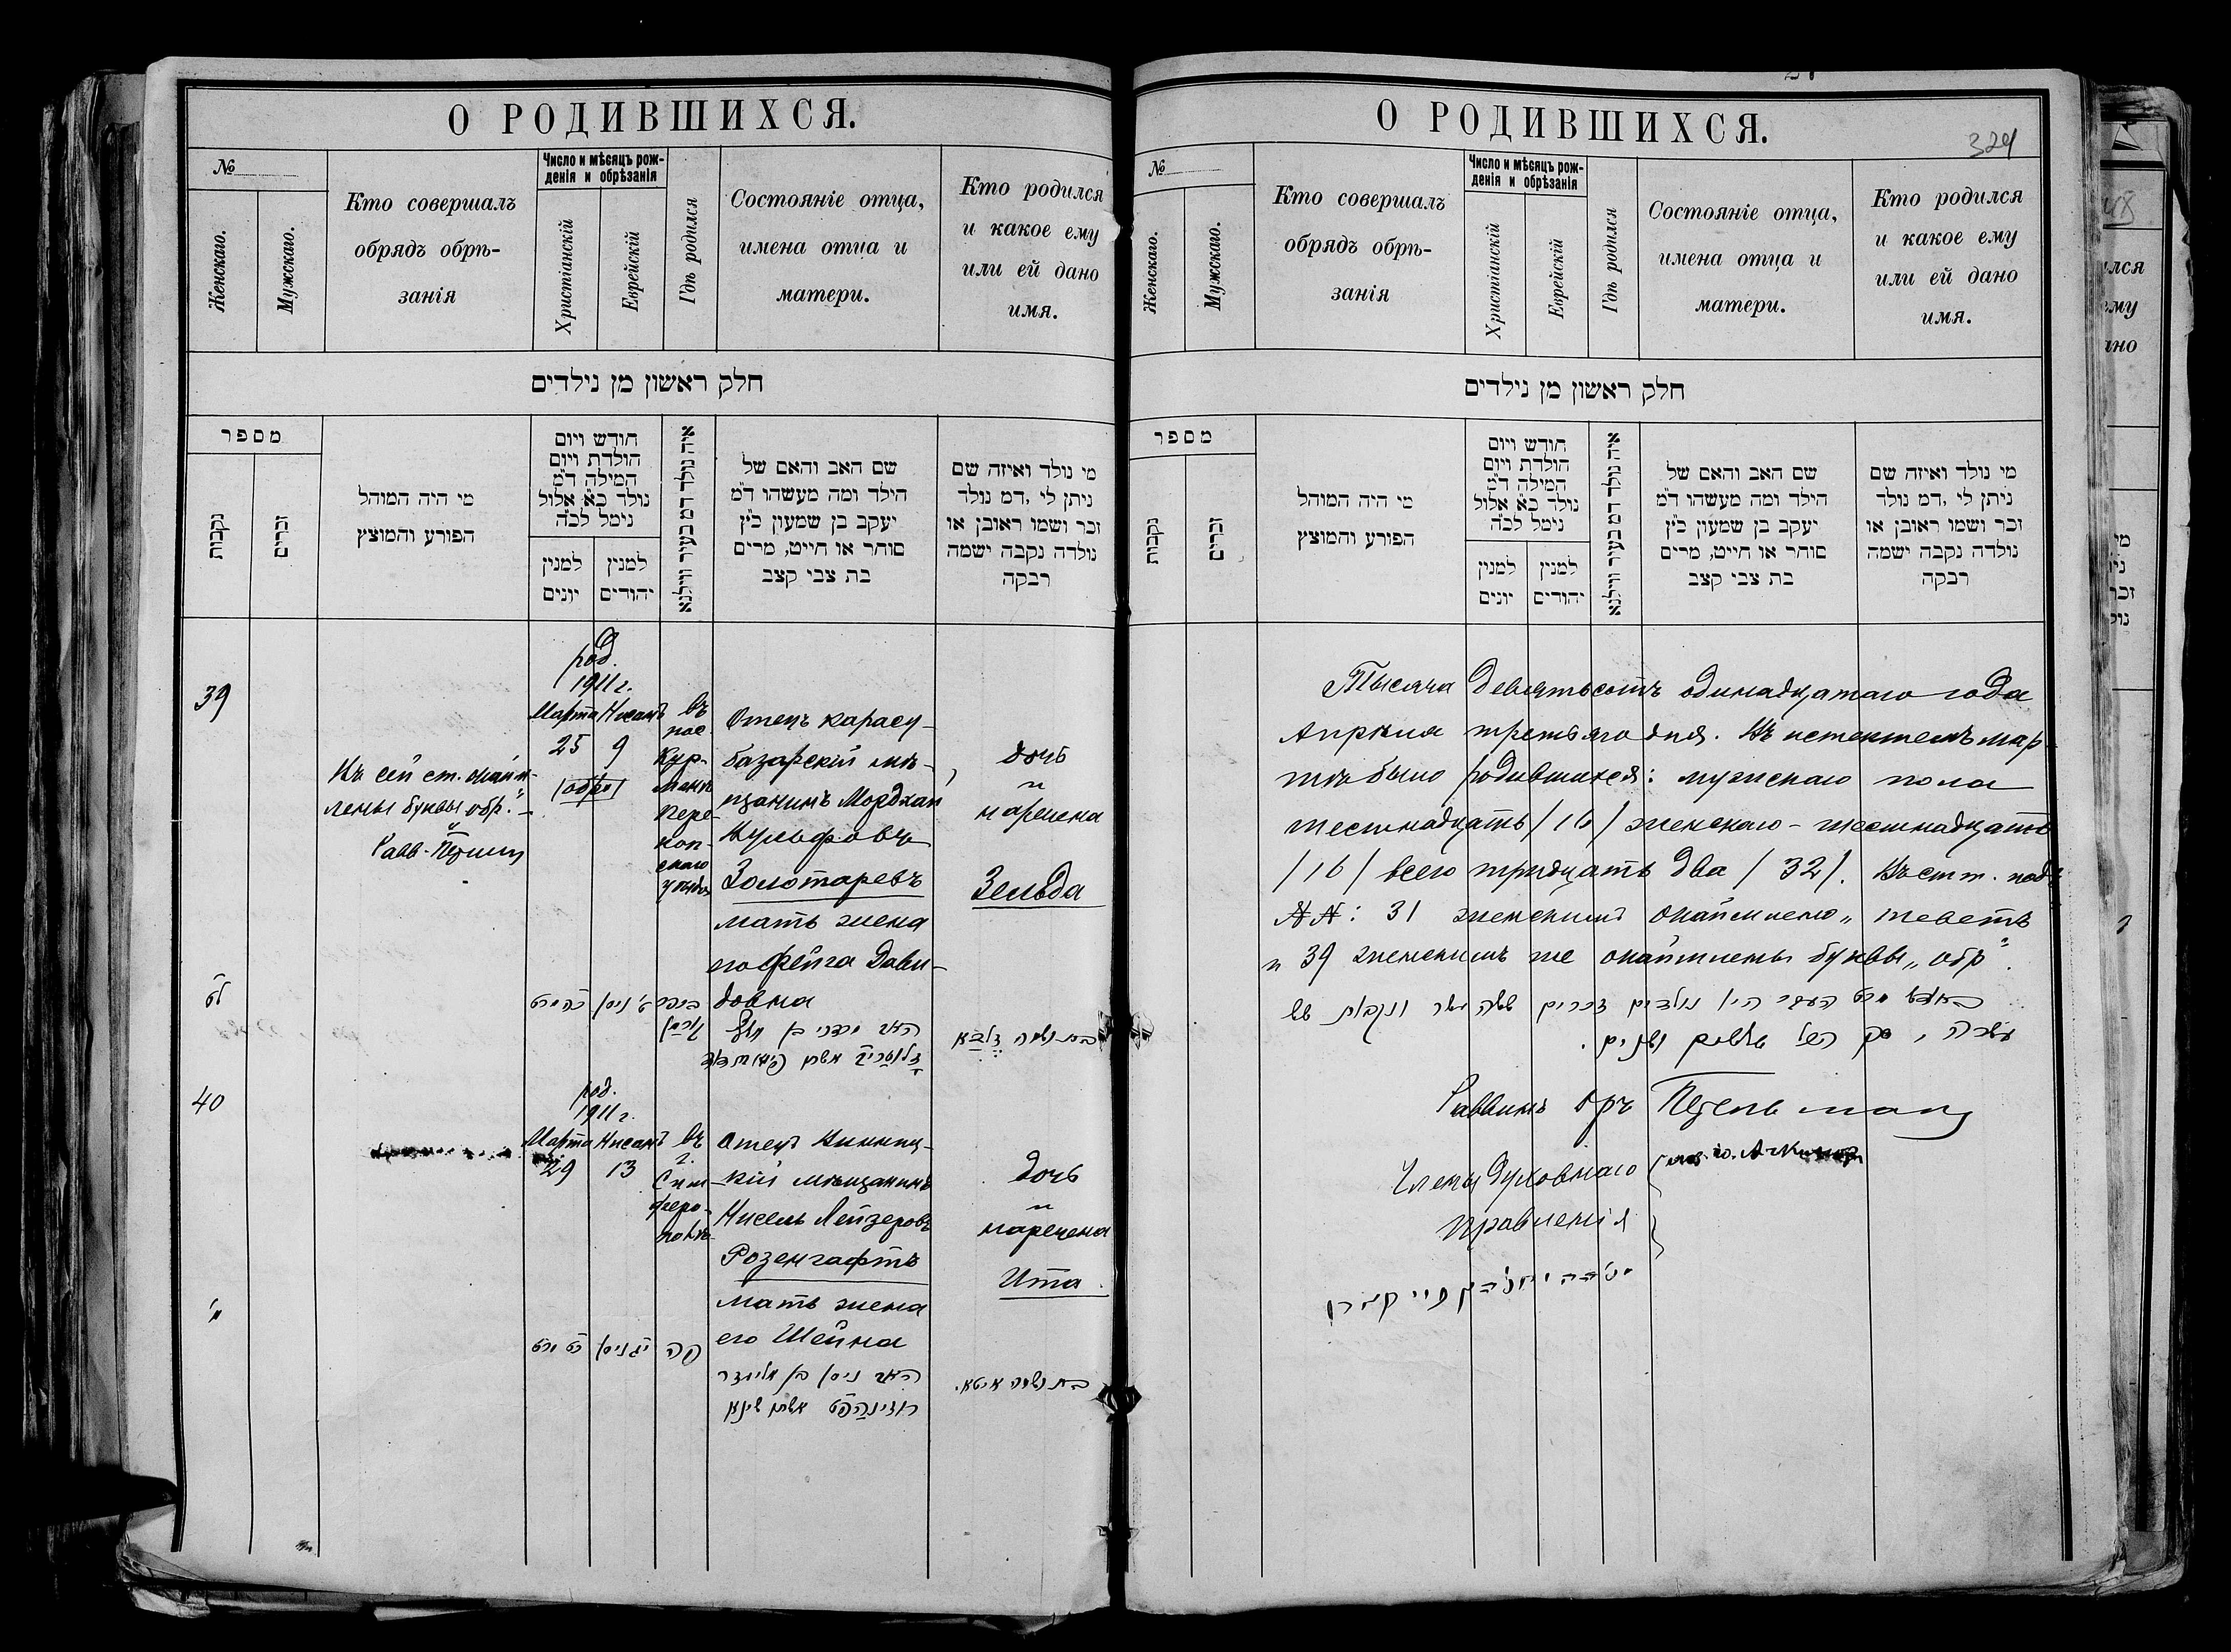 О РОДИВШИХСЯ.
№
Женскаго.
Мужскаго.
Кто совершалъ
обрядъ обрѣ-
занія
Число и мѣсяцъ рож-
денія и обрѣзанія
Христіанскій
Еврейскій
Гдѣ родился
Состояніе отца,
имена отца и
матери.
Кто родился
и какое ему
или ей дано
имя.
חלק ראשון מן נילדים
מספר
נקבות
זכרים
מי היה המוהל
הפורע והמוצץ
חודש ויום
הולדת ויום
המילה ד"מ
נולד כ"א אלול
נימל לכ"ה
למנין
יונים
למנין
יהודים
איה נולד דמ בעיר ווילנא
שם האב והאם של
הילד ומה מעשהו ד"מ
יעקב בן שמעון כ"ץ
סוחר או חייט, מרים
בת צבי קצב
מי נולד ואיזה שם
ניתן לי ,דמ נולד
זכר ושמו ראובן או
נולדה נקבה ישמה
רבקה
39
Въ сей ст. окайм-
лены буквы „обр.“
Равв.
род.
1911 г.
Марта
25
Нисанъ
9
/обр/
въ
пос.
Кур-
манъ
Пере-
коп-
скаго
уѣзда
Отецъ карасу-
базарскій мѣ-
щанинъ Мордхай
Вульфовъ
Золотаревъ
мать жена
его Фейга Дави-
довна
дочь
и
наречена
Зельда
לט
ט' ניסן
האב מרדכי בן וואלף
40
род.
1911 г.
Марта
29
Нисанъ
13
въ
г.
Сим-
феро-
полѣ
Отецъ
кій мѣщанинъ
Нисель Лейзеровъ
Розенгафтъ
мать жена
его Шейна
дочь
и
наречена
Ита
מ'
יג ניסן
פה
האב ניסן בן אליעזר
ראזינהפט אשתו שינא
בת ושמה איטא.
О РОДИВШИХСЯ.
324
№
Женскаго.
Мужскаго.
Кто совершалъ
обрядъ обрѣ-
занія
Число и мѣсяцъ рож-
денія и обрѣзанія
Христіанскій
Еврейскій
Гдѣ родился
Состояніе отца,
имена отца и
матери.
Кто родился
и какое ему
или ей дано
имя.
חלק ראשון מן נילדים
מספר
נקבות
זכרים
מי היה המוהל
הפורע והמוצץ
חודש ויום
הולדת ויום
המילה ד"מ
נולד כ"א אלול
נימל לכ"ה
למנין
יונים
למנין
יהודים
איה נולד דמ בעיר ווילנא
שם האב והאם של
הילד ומה מעשהו ד"מ
יעקב בן שמעון כ"ץ
סוחר או חייט, מרים
בת צבי קצב
מי נולד ואיזה שם
ניתן לי ,דמ נולד
זכר ושמו ראובן או
נולדה נקבה ישמה
רבקה
Тысяча девятьсотъ одинадцатаго года
Апрѣля третьяго дня. Въ истекшемъ мар-
тѣ было родившихся: мужскаго пола
шестнадцать /16/ женскаго - шестнадцать
/16/ всего тридцать два /32/. Въ ст.ст. подъ
№№: 31 женскимъ окаймлено „теветъ
и 39 женскимъ же окаймлены буквы „обр“.
היו נולדים זכרים ששה עשר ונקבות שש
עשרה, סך הכל שלשים ושנים.
Раввинъ
Члены Духовнаго
Правленія